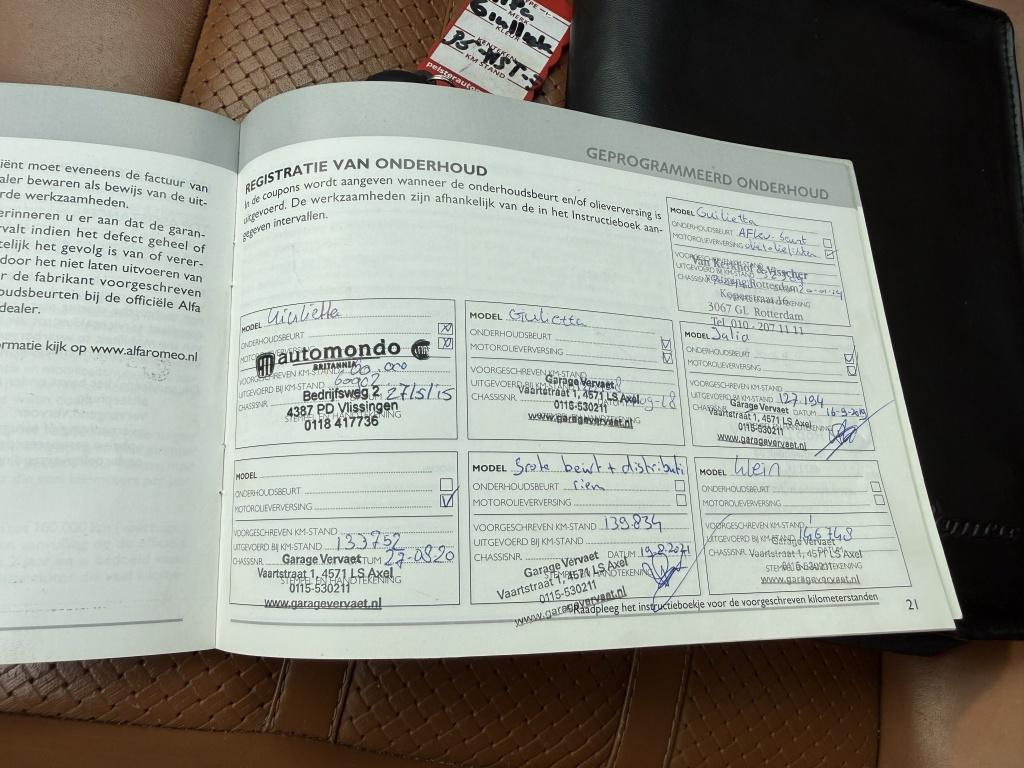 MERK
KLEUR
KENTEKEN
KM STAND
iënt moet eveneens de factuur van
aler bewaren als bewijs van de uit-
rde werkzaamheden.
erinneren u er aan dat de garan-
rvalt indien het defect geheel of
telijk het gevolg is van of verer-
door het niet laten uitvoeren van
r de fabrikant voorgeschreven
oudsbeurten bij de officiële Alfa
dealer.
ormatie kijk op www.alfaromeo.nl
GEPROGRAMMEERD ONDERHOUD
REGISTRATIE VAN ONDERHOUD
In de coupons wordt aangeven wanneer de onderhoudsbeurt en/of olieverversing is
uitgevoerd. De werkzaamheden zijn afhankelijk van de in het Instructieboek aan-
gegeven intervallen.
MODEL Guilietta
ONDERHOUDSBEURT
MOTOROLIEVERVERSING
VOORGESCHREVEN KM-STAND
UITGEVOERD BIJ KM-STAND
CHASSISNR.
Van Kerkhof & Visscher
Rotterdam
3067 GL Rotterdam
Tel. 010 - 207 11 11
MODEL Giulietta
ONDERHOUDSBEURT
automondo
BRITANNIA
VOORGESCHREVEN KM-STAND
UITGEVOERD BIJ KM-STAND
CHASSISNR.
27/5/15
Bedrijfsweg 2
4387 PD Vlissingen
STEMPEL EN HANDTEKENING
0118 417736
MODEL Giulietta
ONDERHOUDSBEURT
MOTOROLIEVERVERSING
VOORGESCHREVEN KM-STAND
UITGEVOERD BIJ KM-STAND
CHASSISNR.
Garage Vervaet
Vaartstraat 1, 4571 LS Axel
0115-530211
www.garagevervaet.nl
MODEL
ONDERHOUDSBEURT
MOTOROLIEVERVERSING
VOORGESCHREVEN KM-STAND
UITGEVOERD BIJ KM-STAND 127.194
CHASSISNR. DATUM 16-9-2019
Garage Vervaet
Vaartstraat 1, 4571 LS Axel
0115-530211
www.garagevervaet.nl
MODEL
ONDERHOUDSBEURT
MOTOROLIEVERVERSING
VOORGESCHREVEN KM-STAND
UITGEVOERD BIJ KM-STAND 133752
CHASSISNR. DATUM 27-0820
Garage Vervaet
Vaartstraat 1, 4571 LS Axel
STEMPEL EN HANDTEKENING
0115-530211
www.garagevervaet.nl
MODEL Grote beurt + distributi
ONDERHOUDSBEURT riem
MOTOROLIEVERVERSING
VOORGESCHREVEN KM-STAND 139.834
UITGEVOERD BIJ KM-STAND
CHASSISNR. DATUM 19.8.2021
Garage Vervaet
STEMPEL EN HANDTEKENING
Vaartstraat 1, 4571 LS Axel
0115-530211
www.garagevervaet.nl
MODEL Klein
ONDERHOUDSBEURT
MOTOROLIEVERVERSING
VOORGESCHREVEN KM-STAND
UITGEVOERD BIJ KM-STAND 146748
CHASSISNR.
Garage Vervaet
Vaartstraat 1, 4571 LS Axel
0115-530211
www.garagevervaet.nl
Raadpleeg het instructieboekje voor de voorgeschreven kilometerstanden
21